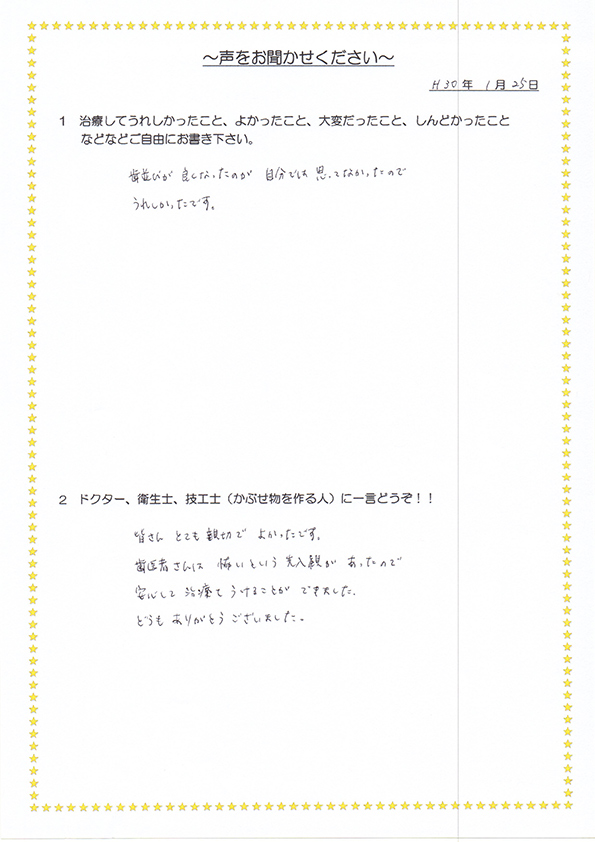 ～声をお聞かせください～
H30年 1月25日
1 治療してうれしかったこと、よかったこと、大変だったこと、しんどかったこと
などなどご自由にお書き下さい。
歯並びが 良くなったのが 自分では 思ってなかったので
うれしかったです。
2 ドクター、衛生士、技工士（かぶせ物を作る人）に一言どうぞ！！
皆さん とても 親切で よかったです。
歯医者さんは 怖いという 先入観が あったので
安心して 治療を うけることが できました.
どうも ありがとう ございました。